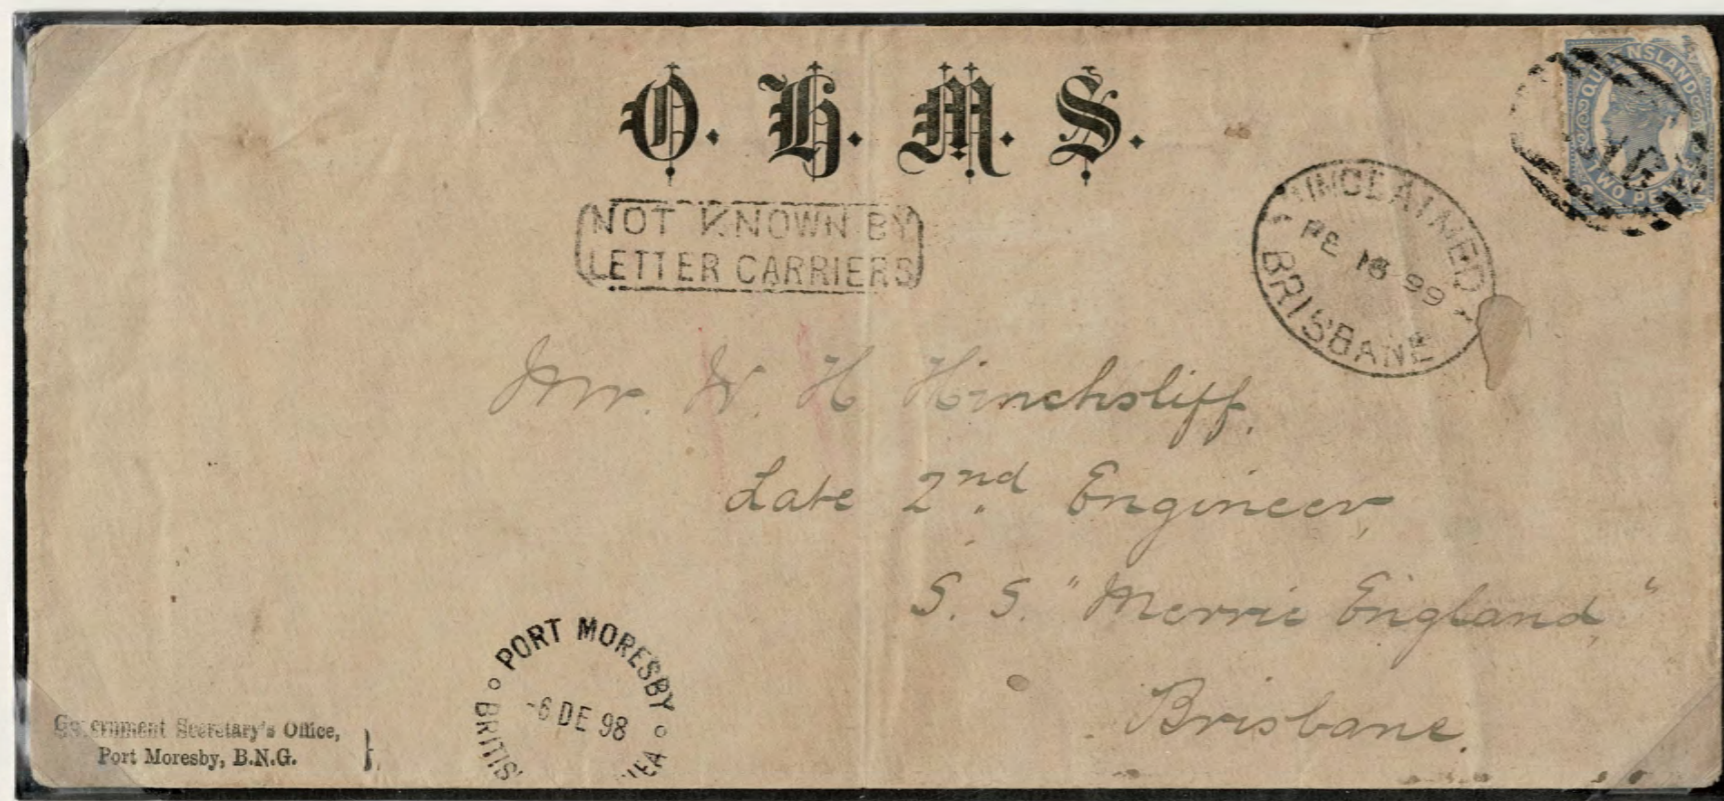 O. H. M. S.
QUEENSLAND
TWO PE
NOT KNOWN BY
LETTER CARRIERS
UNCLAIMED
FE 18 99
BRISBANE
Mr. W. H Hinchsliff,
Late 2nd Engineer,
S. S. "Merrie England,"
Brisbane.
PORT MORESBY
-6 DE 98
BRITIS
EA
Government Secretary's Office,
Port Moresby, B.N.G. }